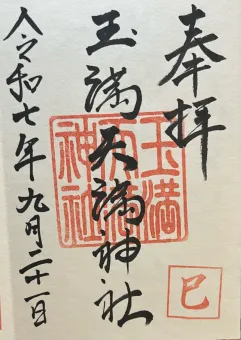 奉拝
玉満天満神社
玉満
天満
神社
令和七年九月二十一日
巳